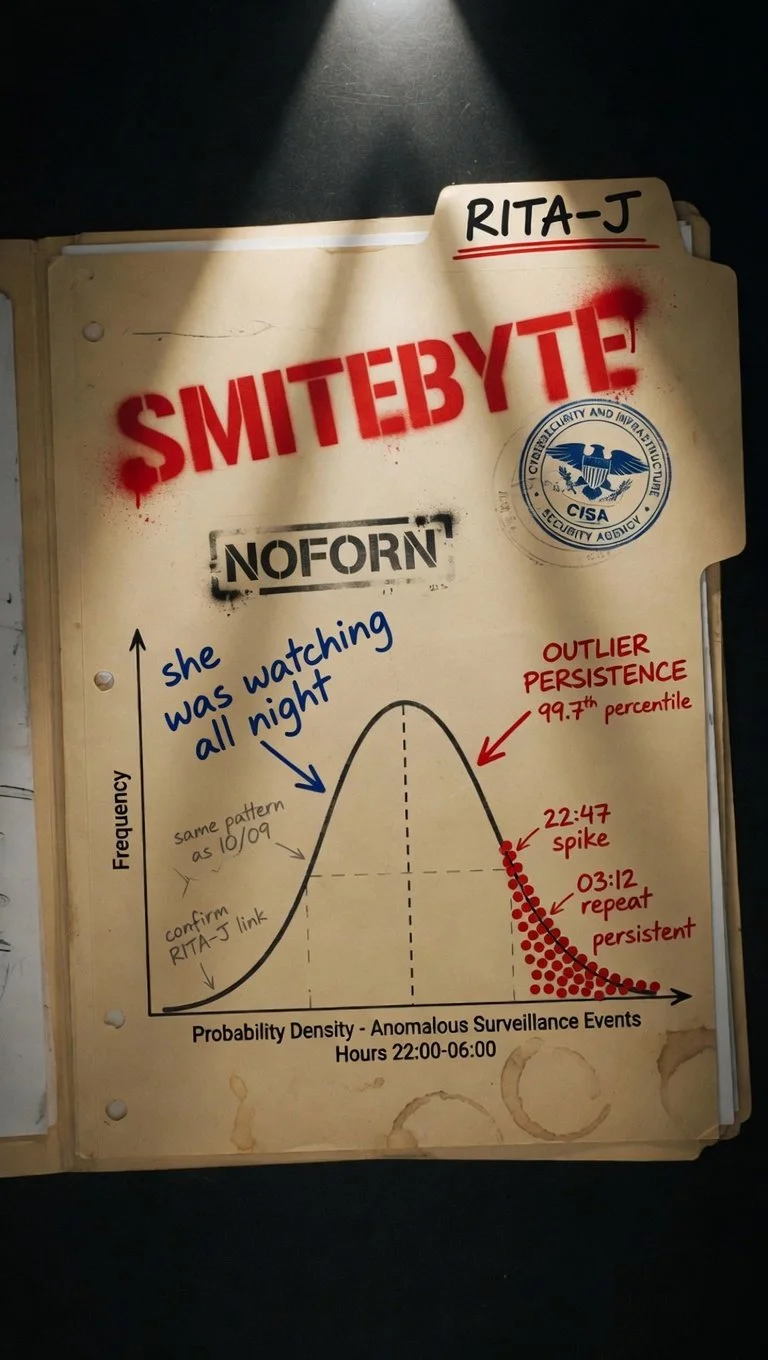 RITA-J
SMITEBYTE
CYBERSECURITY AND INFRASTRUCTURE
CISA
SECURITY AGENCY
NOFORN
she
was watching
all night
OUTLIER
PERSISTENCE
99.7th percentile
same pattern
as 10/09
22:47
spike
03:12
repeat
persistent
confirm
RITA-J link
Frequency
Probability Density - Anomalous Surveillance Events
Hours 22:00-06:00